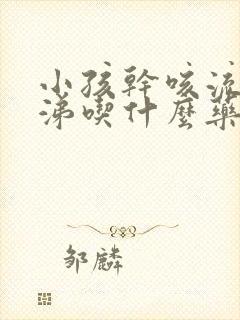 小孩幹咳流
涕喫什麼藥
邹麟